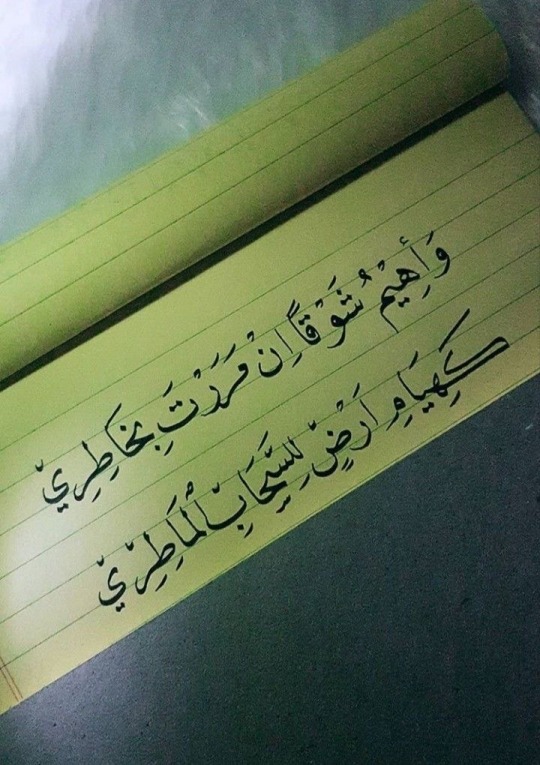 وَأَهِيْمُ شَوْقًا اِنْ مَرَرْتَ بِخَاطِرِيْ
كَهِيَامِ اَرْضٍ لِلسَّحَابِ الْمَاطِرِيْ